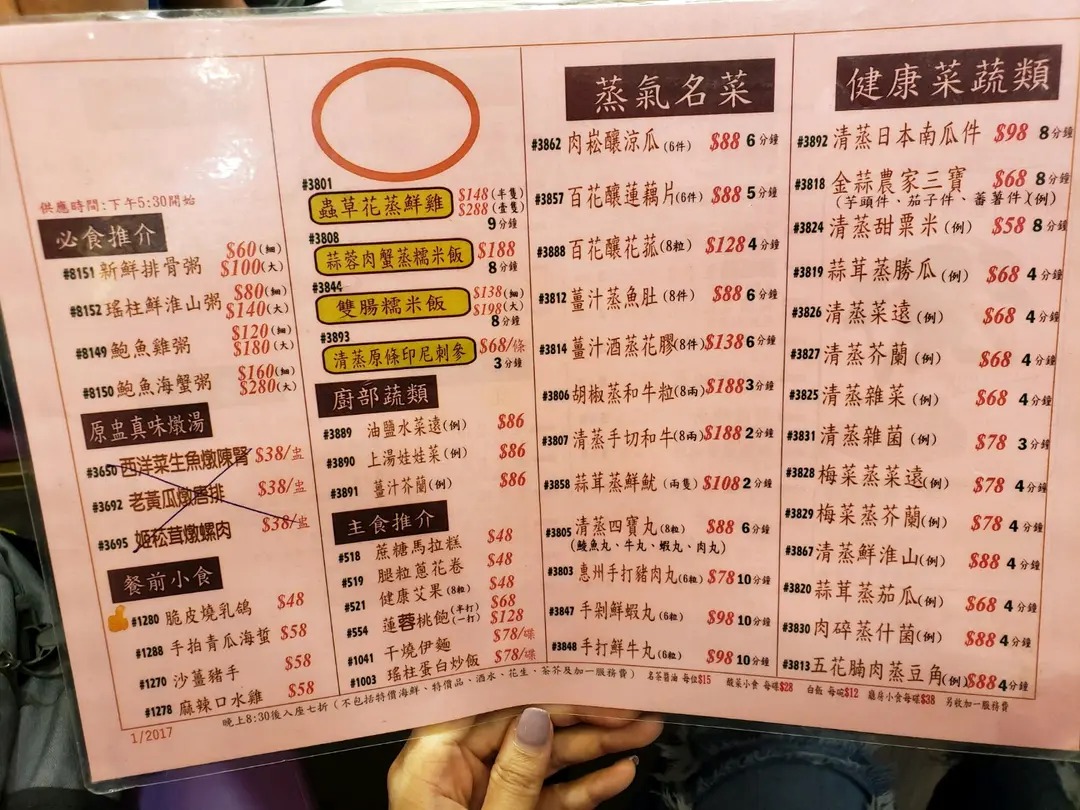 供應時間:下午5:30開始
必食推介
#8151 新鮮排骨粥 $60(細) $100(大)
#8152 瑤柱鮮淮山粥 $80(細) $140(大)
#8149 鮑魚雞粥 $120(細) $180(大)
#8150 鮑魚海蟹粥 $160(細) $280(大)
原盅真味燉湯
#3650 西洋菜生魚燉陳腎 $38/盅
#3692 老黃瓜燉唐排 $38/盅
#3695 姬松茸燉螺肉 $38/盅
餐前小食
#1280 脆皮燒乳鴿 $48
#1288 手拍青瓜海蜇 $58
#1270 沙薑豬手 $58
#1278 麻辣口水雞 $58
#3801
蟲草花蒸鮮雞 $148(半隻) $288(壹隻)
9分鐘
#3808
蒜蓉肉蟹蒸糯米飯 $188
8分鐘
#3844
雙腸糯米飯 $138(細) $198(大)
8分鐘
#3893
清蒸原條印尼刺參 $68/條
3分鐘
廚部蔬類
#3889 油鹽水菜遠(例) $86
#3890 上湯娃娃菜(例) $86
#3891 薑汁芥蘭(例) $86
主食推介
#518 蔗糖馬拉糕 $48
#519 腿粒蔥花卷 $48
#521 健康艾果(8粒) $48
#554 蓮蓉桃飽(半打)(一打) $68 $128
#1041 干燒伊麵 $78/碟
#1003 瑤柱蛋白炒飯 $78/碟
蒸氣名菜
#3862 肉崧釀涼瓜(6件) $88 6分鐘
#3857 百花釀蓮藕片(6件) $88 5分鐘
#3888 百花釀花菰(8粒) $128 4分鐘
#3812 薑汁蒸魚肚(8件) $88 6分鐘
#3814 薑汁酒蒸花膠(8件) $138 6分鐘
#3806 胡椒蒸和牛粒(8兩) $188 3分鐘
#3807 清蒸手切和牛(8兩) $188 2分鐘
#3858 蒜茸蒸鮮魷(兩隻) $108 2分鐘
#3805 清蒸四寶丸(8粒) $88 6分鐘
(鯪魚丸、牛丸、蝦丸、肉丸)
#3803 惠州手打豬肉丸(6粒) $78 10分鐘
#3847 手剁鮮蝦丸(6粒) $98 10分鐘
#3848 手打鮮牛丸(6粒) $98 10分鐘
健康菜蔬類
#3892 清蒸日本南瓜件 $98 8分鐘
#3818 金蒜農家三寶 $68 8分鐘
(芋頭件、茄子件、番薯件)(例)
#3824 清蒸甜粟米(例) $58 8分鐘
#3819 蒜茸蒸勝瓜(例) $68 4分鐘
#3826 清蒸菜遠(例) $68 4分鐘
#3827 清蒸芥蘭(例) $68 4分鐘
#3825 清蒸雜菜(例) $68 4分鐘
#3831 清蒸雜菌(例) $78 3分鐘
#3828 梅菜蒸菜遠(例) $78 4分鐘
#3829 梅菜蒸芥蘭(例) $78 4分鐘
#3867 清蒸鮮淮山(例) $88 4分鐘
#3820 蒜茸蒸茄瓜(例) $68 4分鐘
#3830 肉碎蒸什菌(例) $88 4分鐘
#3813 五花腩肉蒸豆角(例) $88 4分鐘
晚上8:30後入座七折(不包括特價海鮮、特價品、酒水、花生、茶芥及加一服務費) 名茶醬油 每位$15 餸菜小食 每碟$28 白飯 每碗$12 廳房小食每碟$38 另收加一服務費
1/2017